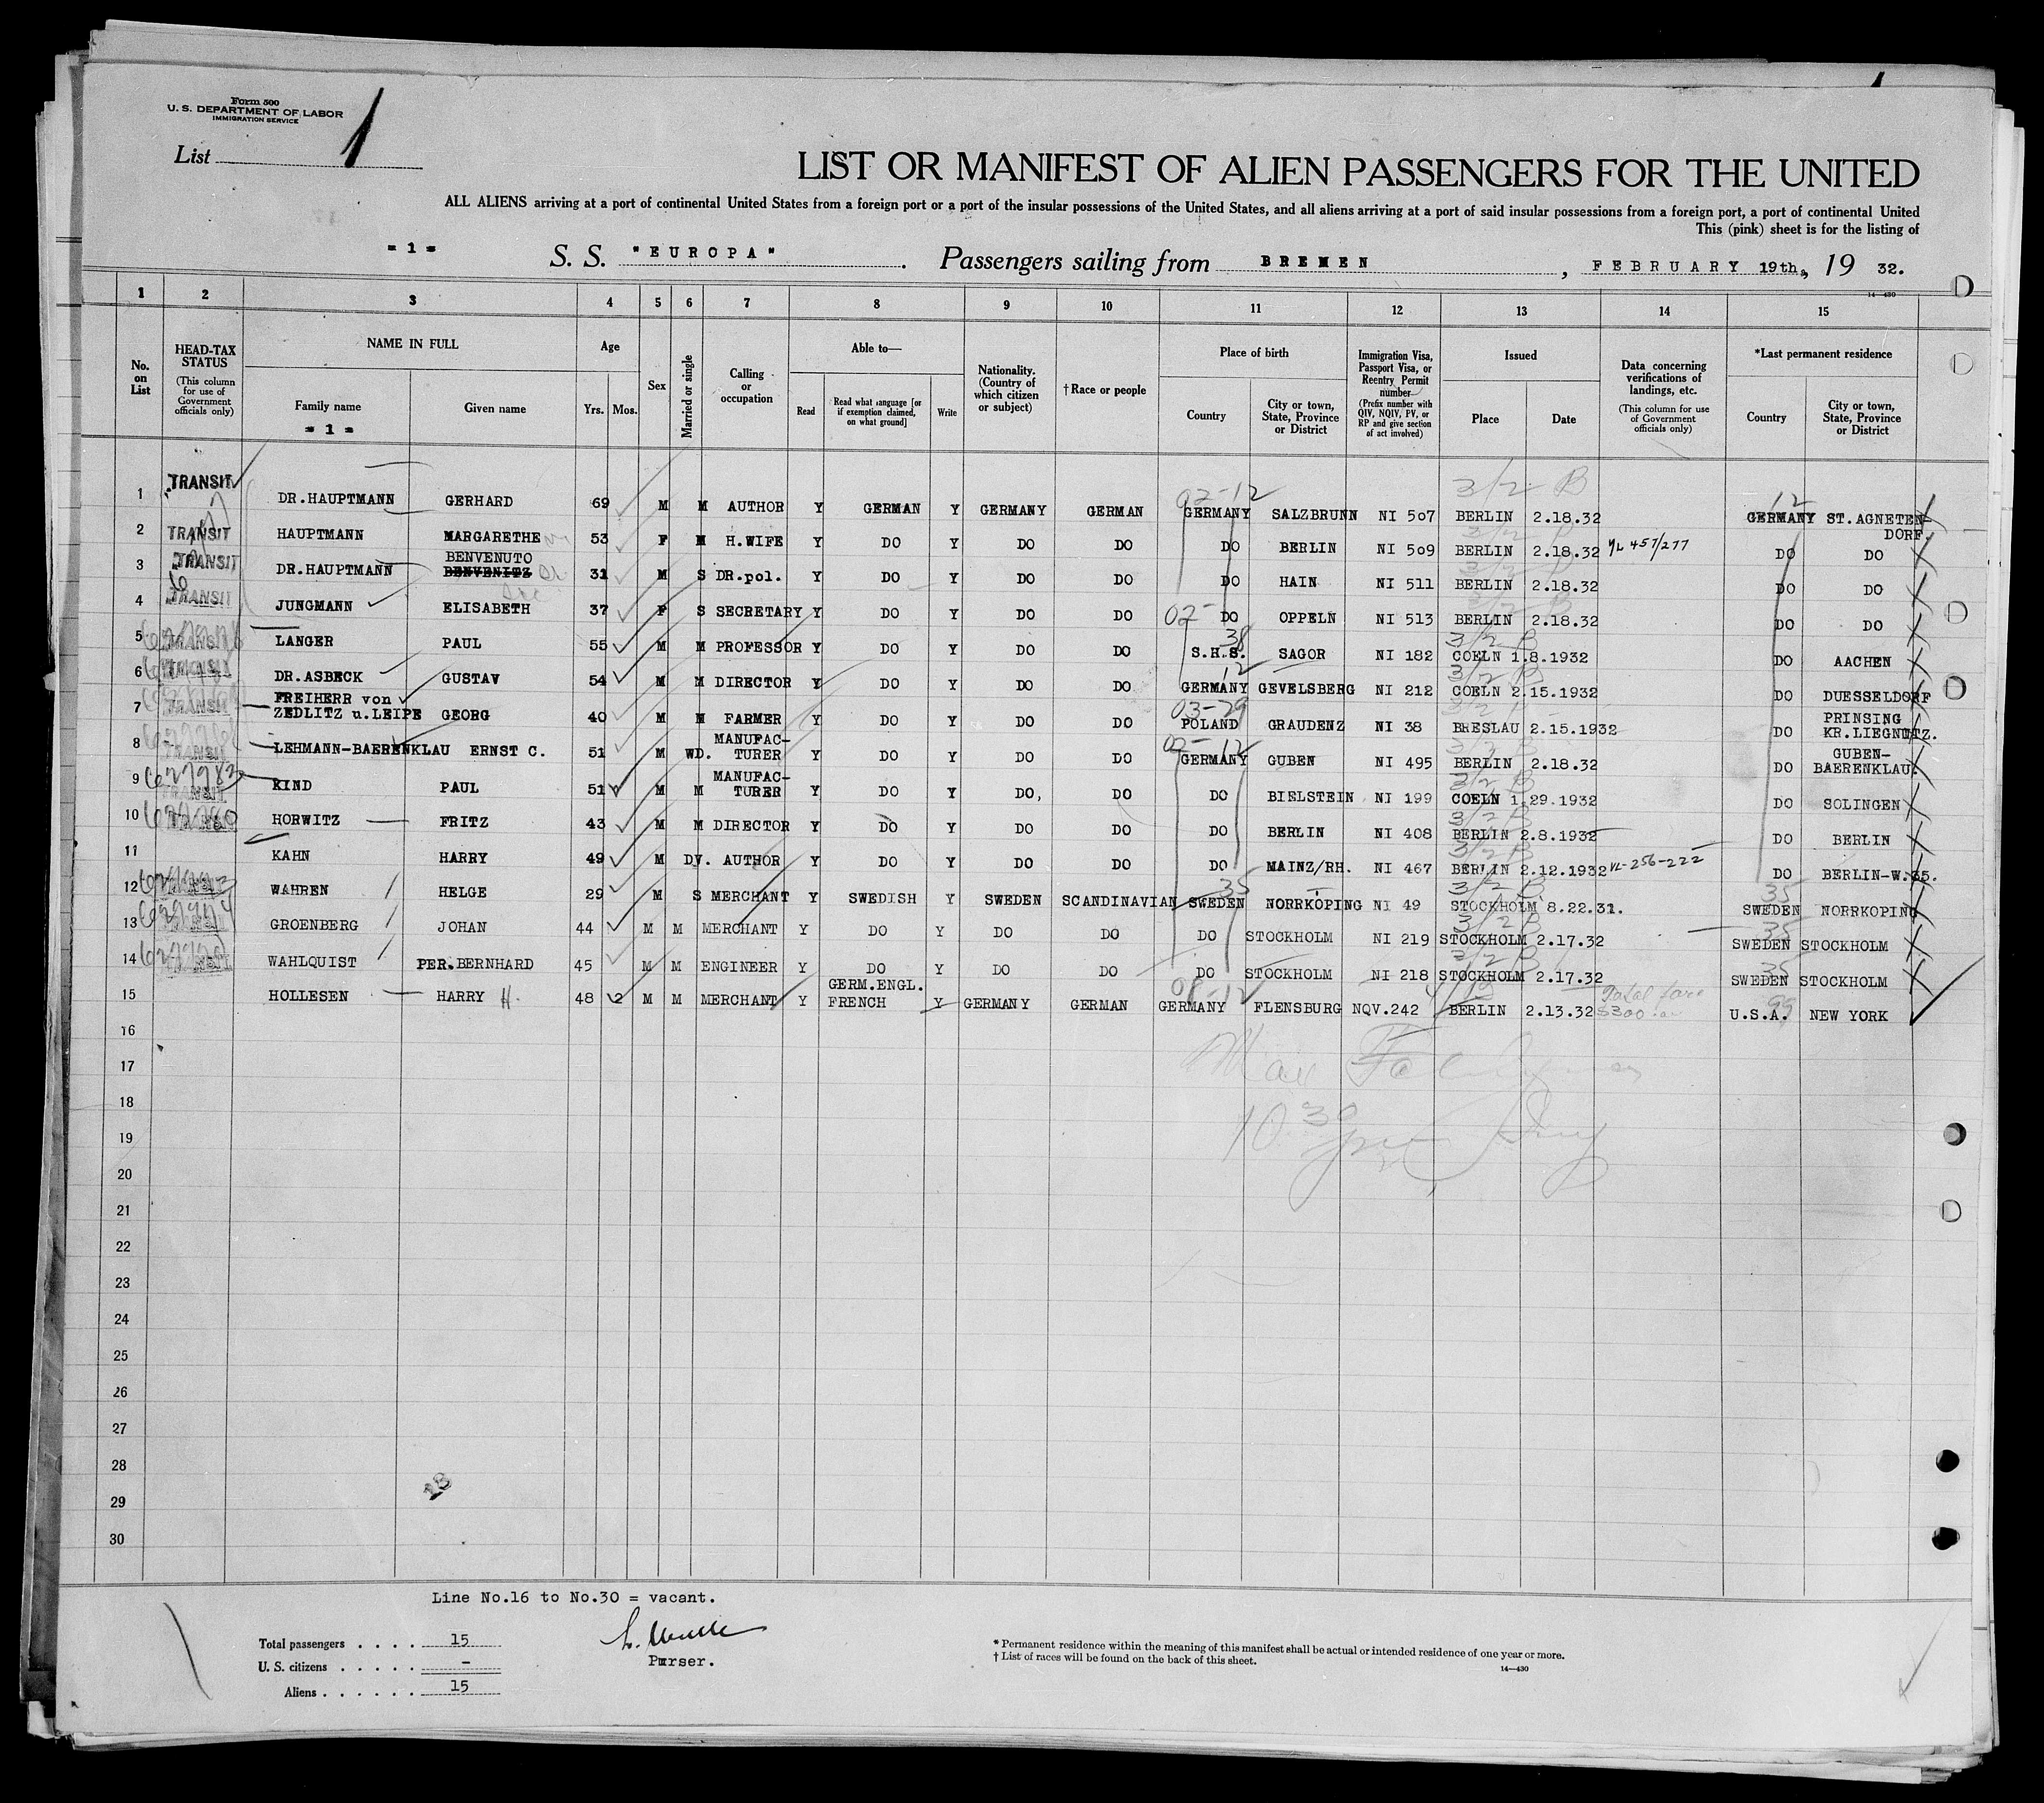 Form 500
U. S. DEPARTMENT OF LABOR
IMMIGRATION SERVICE
List 1
LIST OR MANIFEST OF ALIEN PASSENGERS FOR THE UNITED
ALL ALIENS arriving at a port of continental United States from a foreign port or a port of the insular possessions of the United States, and all aliens arriving at a port of said insular possessions from a foreign port, a port of continental United
This (pink) sheet is for the listing of
= 1 = S. S. "EUROPA". Passengers sailing from BREMEN, FEBRUARY 19th, 19 32.
14—430
1 2 3 4 5 6 7 8 9 10 11 12 13 14 15
No. on List
HEAD-TAX STATUS (This column for use of Government officials only)
NAME IN FULL Family name Given name
= 1 =
Age Yrs. Mos.
Sex
Married or single
Calling or occupation
Able to— Read Read what language [or if exemption claimed, on what ground] Write
Nationality. (Country of which citizen or subject)
†Race or people
Place of birth Country City or town, State, Province or District
Immigration Visa, Passport Visa, or Reentry Permit number (Prefix number with QIV, NQIV, PV, or RP and give section of act involved)
Issued Place Date
Data concerning verifications of landings, etc. (This column for use of Government officials only)
*Last permanent residence Country City or town, State, Province or District
1 TRANSIT DR.HAUPTMANN GERHARD 69 M M AUTHOR Y GERMAN Y GERMANY GERMAN 02-12 GERMANY SALZBRUNN NI 507 3/2 B BERLIN 2.18.32 12 GERMANY ST.AGNETEN-DORF.
2 TRANSIT HAUPTMANN MARGARETHE 53 F M H.WIFE Y DO Y DO DO DO BERLIN NI 509 BERLIN 2.18.32 VL 457/277 DO DO
3 TRANSIT DR.HAUPTMANN BENVENUTO BENVENITZ 31 M S DR.pol. Y DO Y DO DO DO HAIN NI 511 BERLIN 2.18.32 DO DO
4 TRANSIT JUNGMANN ELISABETH 37 F S SECRETARY Y DO Y DO DO 02- DO OPPELN NI 513 3/2 B BERLIN 2.18.32 DO DO
5 TRANSIT LANGER PAUL 55 M M PROFESSOR Y DO Y DO DO 38 S.H.S. SAGOR NI 182 3/2 B COELN 1.8.1932 DO AACHEN
6 TRANSIT DR.ASBECK GUSTAV 54 M M DIRECTOR Y DO Y DO DO 12 GERMANY GEVELSBERG NI 212 3/2 B COELN 2.15.1932 DO DUESSELDORF
7 TRANSIT FREIHERR von ZEDLITZ u.LEIPE GEORG 40 M M FARMER Y DO Y DO DO 03-29 POLAND GRAUDENZ NI 38 BRESLAU 2.15.1932 DO PRINSING KR.LIEGNITZ.
8 TRANSIT LEHMANN-BAERENKLAU ERNST C. 51 M WD. MANUFAC-TURER Y DO Y DO DO 02-12 GERMANY GUBEN NI 495 3/2 B BERLIN 2.18.32 DO GUBEN-BAERENKLAU.
9 TRANSIT KIND PAUL 51 M M MANUFAC-TURER Y DO Y DO, DO DO BIELSTEIN NI 199 3/2 B COELN 1.29.1932 DO SOLINGEN
10 HORWITZ FRITZ 43 M M DIRECTOR Y DO Y DO DO DO BERLIN NI 408 3/2 B BERLIN 2.8.1932 DO BERLIN
11 KAHN HARRY 49 M DV. AUTHOR Y DO Y DO DO DO MAINZ/RH. NI 467 3/2 B BERLIN 2.12.1932 VL-256-222 DO BERLIN-W.35.
12 WAHREN HELGE 29 M S MERCHANT Y SWEDISH Y SWEDEN SCANDINAVIAN 35 SWEDEN NORRKOPING NI 49 3/2 B STOCKHOLM 8.22.31. 35 SWEDEN NORRKOPING
13 GROENBERG JOHAN 44 M M MERCHANT Y DO Y DO DO DO STOCKHOLM NI 219 3/2 B STOCKHOLM 2.17.32 35 SWEDEN STOCKHOLM
14 WAHLQUIST PER.BERNHARD 45 M M ENGINEER Y DO Y DO DO DO STOCKHOLM NI 218 3/2 B STOCKHOLM 2.17.32 35 SWEDEN STOCKHOLM
15 HOLLESEN HARRY H. 48 2 M M MERCHANT Y GERM.ENGL. FRENCH Y GERMANY GERMAN GERMANY FLENSBURG NQV.242 BERLIN 2.13.32 $300 99 U.S.A. NEW YORK
16
17
18
19
20
21
22
23
24
25
26
27
28
29
30
Line No.16 to No.30 = vacant.
Total passengers . . . . 15
U. S. citizens . . . . . –
Aliens . . . . . . 15
Purser.
* Permanent residence within the meaning of this manifest shall be actual or intended residence of one year or more.
† List of races will be found on the back of this sheet.
14—430